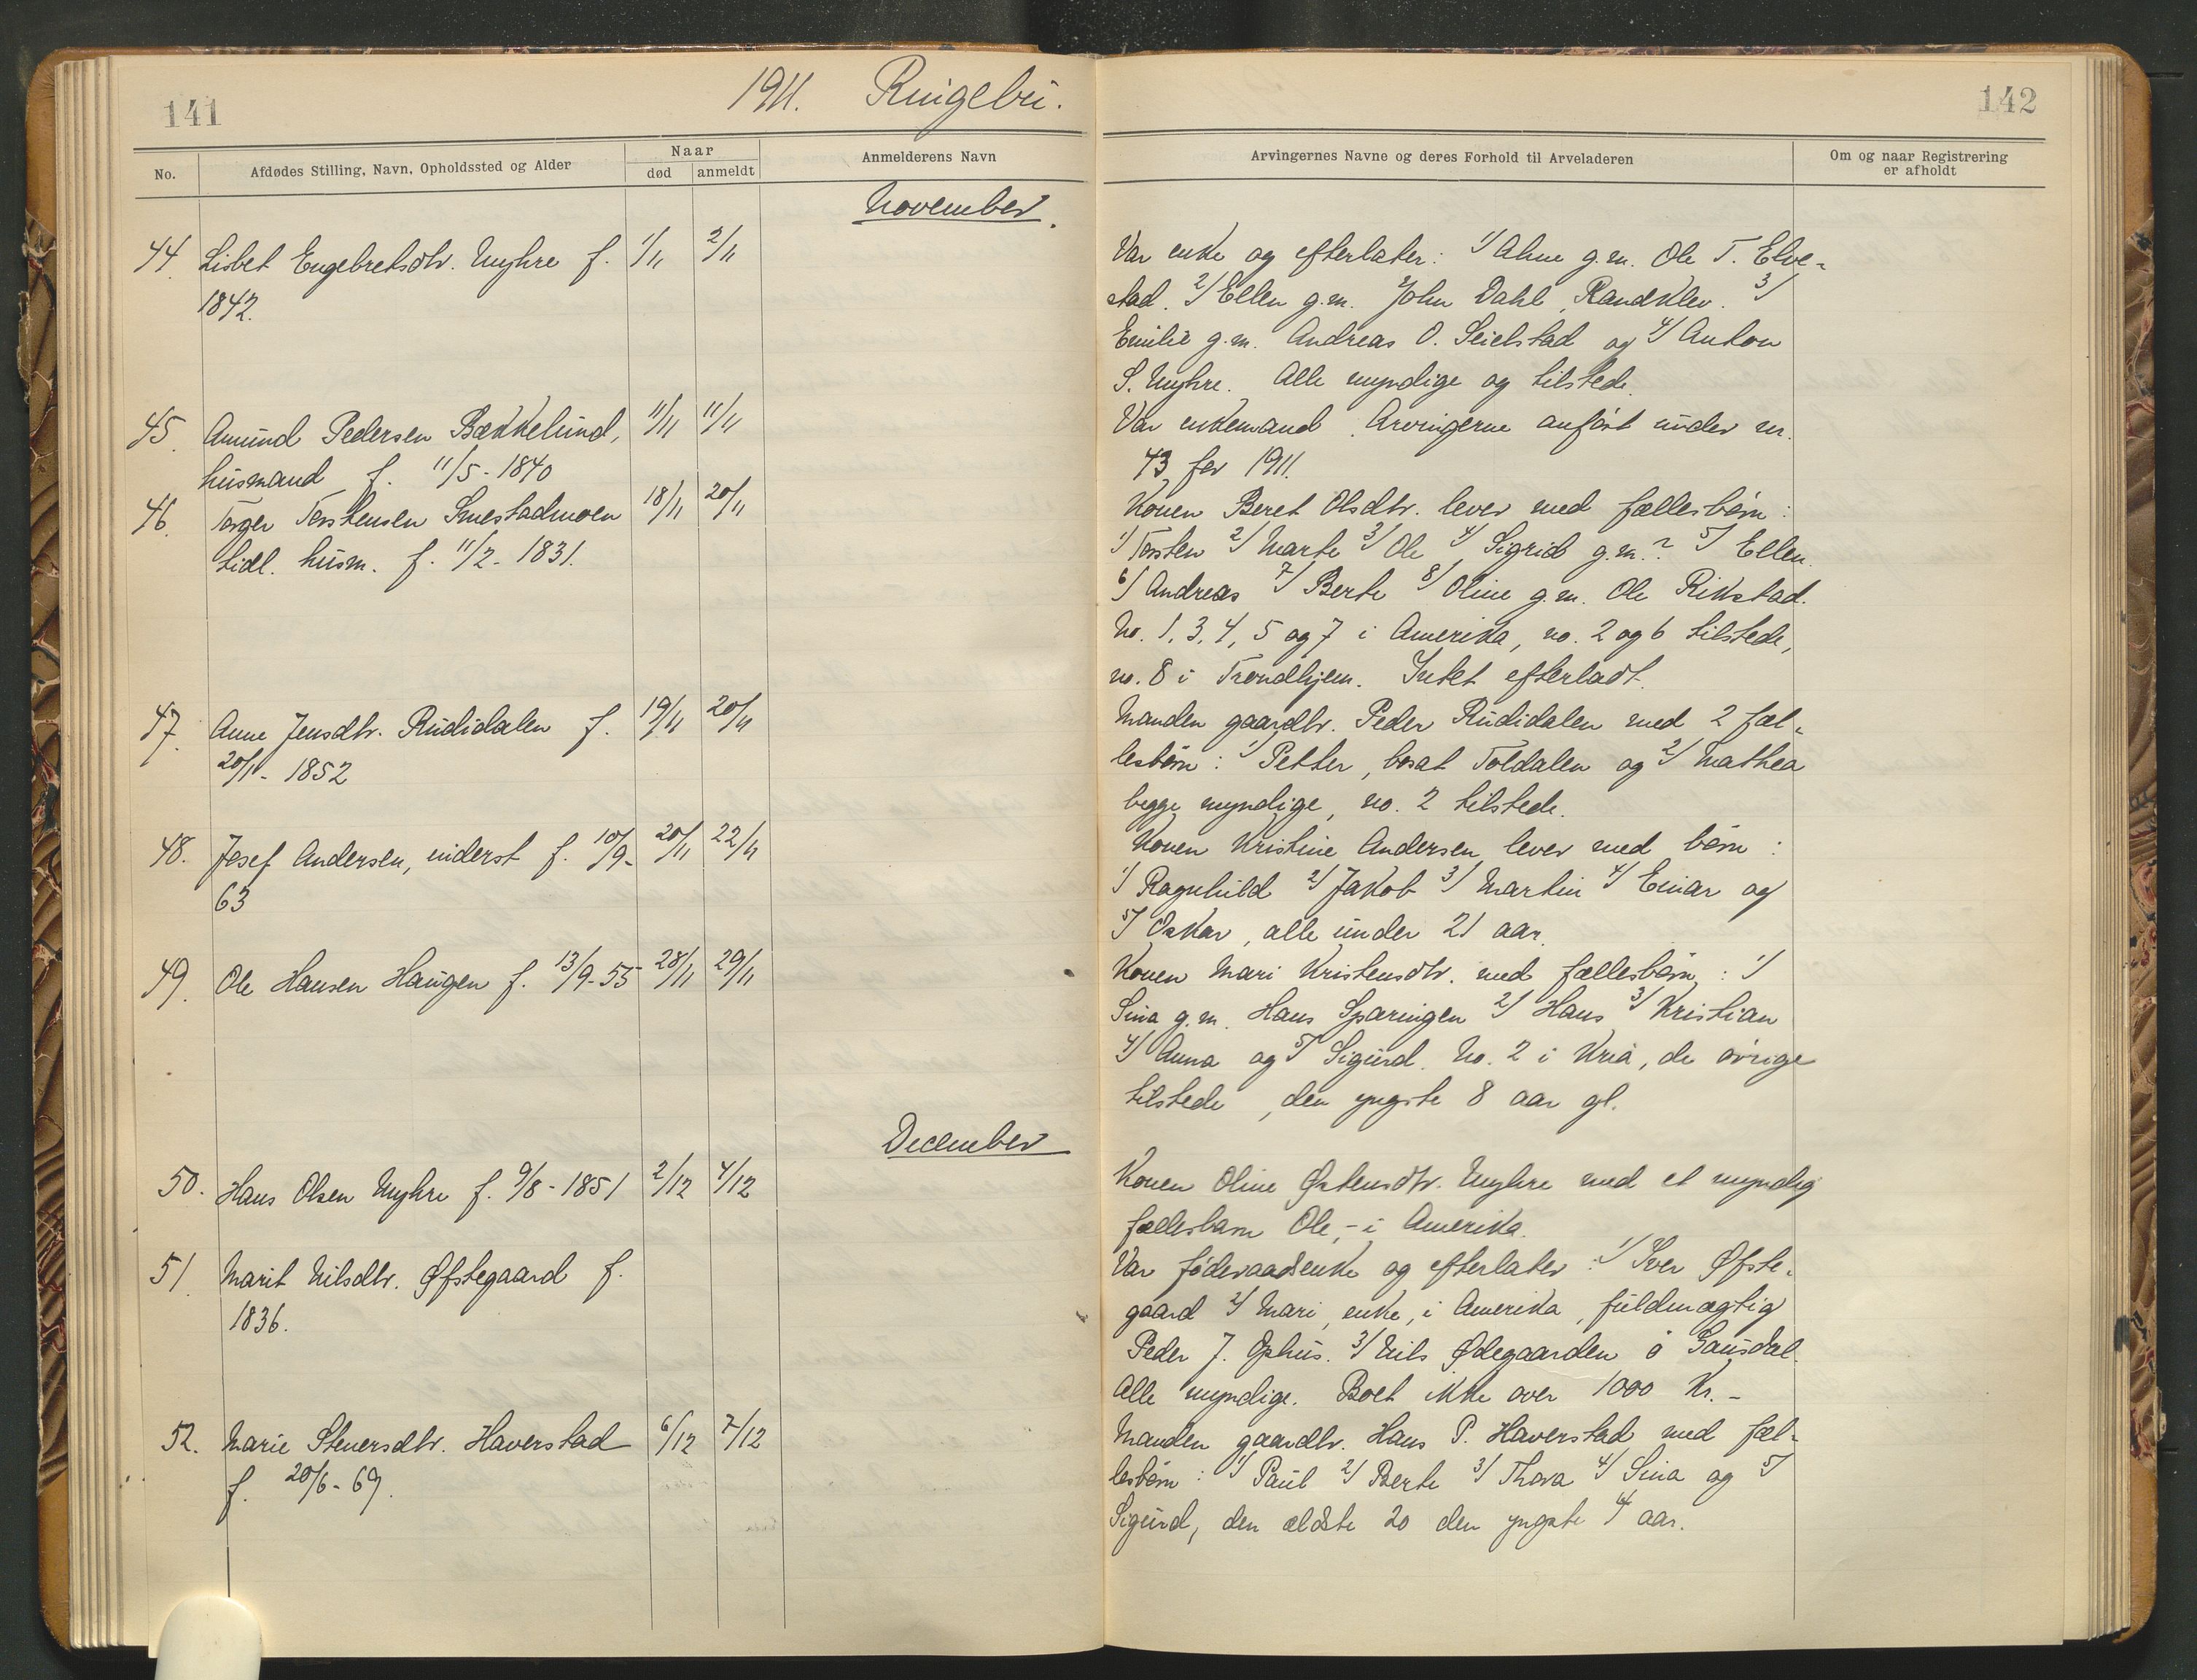 141
1911. Ringebu.
No.
Afdødes Stilling, Navn, Opholdssted og Alder
Naar
død
anmeldt
Anmelderens Navn
November.
44. Lisbet Engebretsdtr. Myhre f. 1/11 2/11
1842.
45. Amund Pedersen Bækkelund, 11/11 11/11
husmand f. 11/5-1840
46. Torger Torstensen Smestadmoen 18/11 20/11
tidl. husm. f. 11/2-1831.
47. Anne Jensdtr. Rudidalen f. 19/11 20/11
20/11-1852
48. Josef Andersen, inderst f. 10/9- 20/11 22/11
63
49. Ole Hansen Haugen f. 13/9-55 28/11 29/11
December
50. Hans Olsen Myhre f. 9/8-1851 2/12 4/12
51. Marit Nilsdtr. Øfstegaard f.
1836.
52. Marie Stenersdtr. Haverstad 6/12 7/12
f. 20/6-69.
142
Arvingernes Navne og deres Forhold til Arveladeren
Om og naar Registrering
er afholdt
Var enke og efterlater: 1/ Ahne g.m. Ole T. Elve-
stad. 2/ Ellen g.m. John Dahl, Randklev. 3/
Emilie g.m. Andreas O. Seielstad og 4/ Anton
S. Myhre. Alle myndige og tilstede.
Var enkemand. Arvingerne anført under nr.
43 for 1911.
Konen Beret Olsdtr. lever med fællesbørn:
1/ Torsten 2/ Marte 3/ Ole 4/ Sigrid g.m.? 5/ Ellen
6/ Andreas 7/ Berte 8/ Oline g.m. Ole Rikstad.
No. 1, 3, 4, 5 og 7 i Amerika, no. 2 og 6 tilstede,
no. 8 i Trondhjem. Intet efterladt.
Manden gaardbr. Peder Rudidalen med 2 fæl-
lesbørn: 1/ Petter, bosat Toldalen og 2/ Mathea
begge myndige, no. 2 tilstede.
Konen Kristine Andersen lever med børn:
1/ Ragnhild 2/ Jakob 3/ Martin 4/ Einar og
5/ Oskar, alle under 21 aar.
Konen Mari Kristensdtr. med fællesbørn: 1/
Sina g.m. Hans Sparingen 2/ Hans 3/ Kristian
4/ Anna og 5/ Sigurd. No. 2 i Kria, de øvrige
tilstede, den yngste 8 aar gl.
Konen Oline Østensdtr. Myhre med et myndig
fællesbarn Ole, - i Amerika.
Var føderaadsenke og efterlater: 1/ Iver Øfste-
gaard 2/ Mari, enke, i Amerika, fuldmægtig
Peder J. Ophus. 3/ Nils Ødegaarden ö Gausdal.
Alle myndige. Boet ikke over 1000 Kr.-
Manden gaardbr. Hans P. Haverstad med fæl-
lesbørn: 1/ Paul 2/ Berte 3/ Thora 4/ Sina og 5/
Sigurd, den ældste 20 den yngste 4 aar.